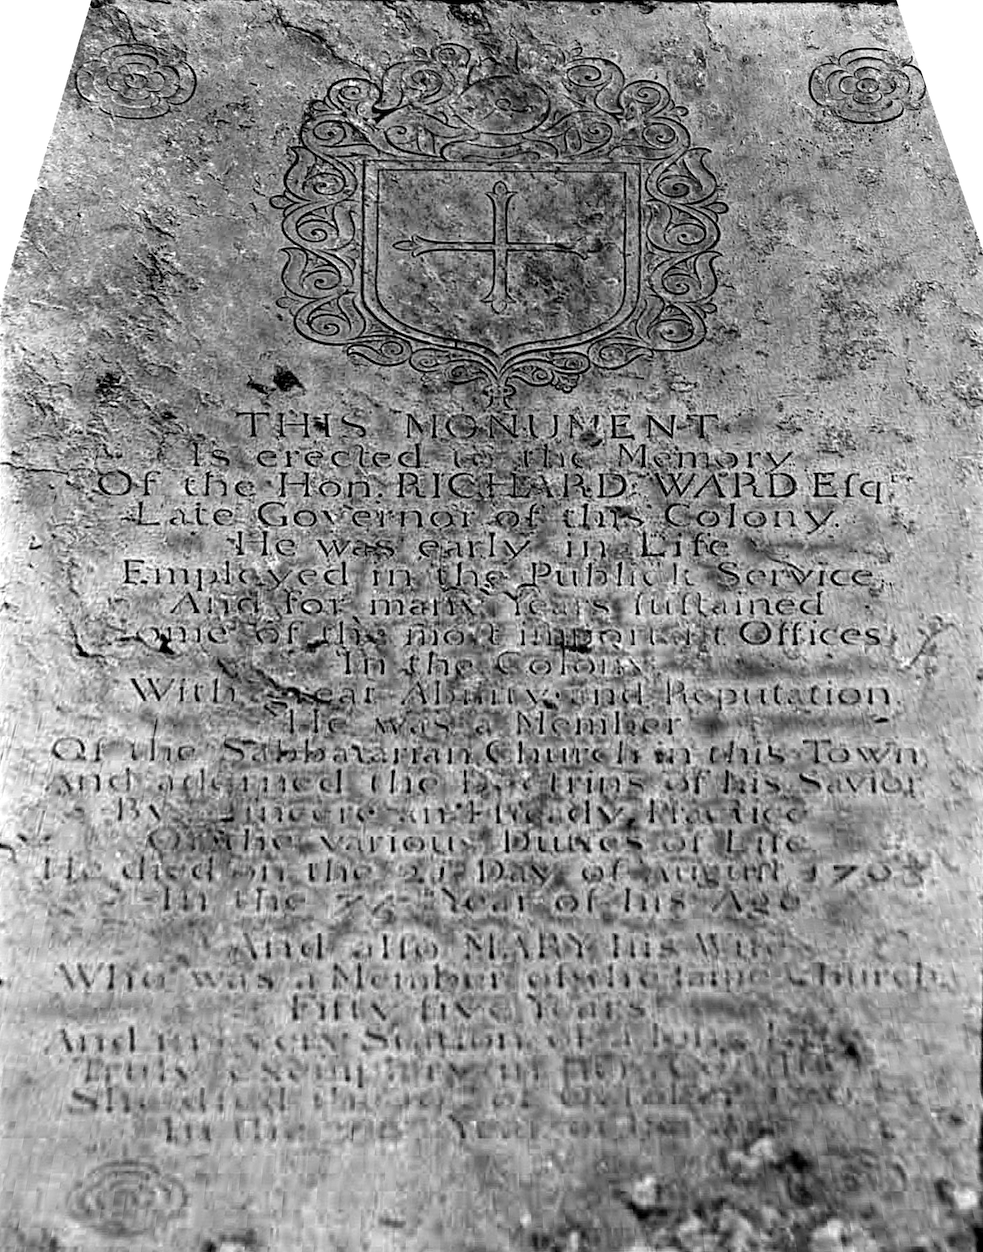 THIS MONUMENT
Is erected to the Memory
Of the Hon. RICHARD WARD Eſq.
Late Governor of this Colony.
He was early in Life
Employed in the Publick Service
And for many Years ſuſtained
Some of the moſt important Offices
In the Colony
With great Ability and Reputation
He was a Member
Of the Sabbatarian Church in this Town
And adorned the Doctrins of his Savior
By a ſincere and ſteady Practice
Of the various Duties of Life
He died on the 21 Day of Auguſt 1763
In the 75 Year of his Age
And alſo MARY his Wife
Who was a Member of the ſame Church
Fifty five Years
And in every Station of a long Life
Truly exemplary
She died the of October
In the Year of her Age